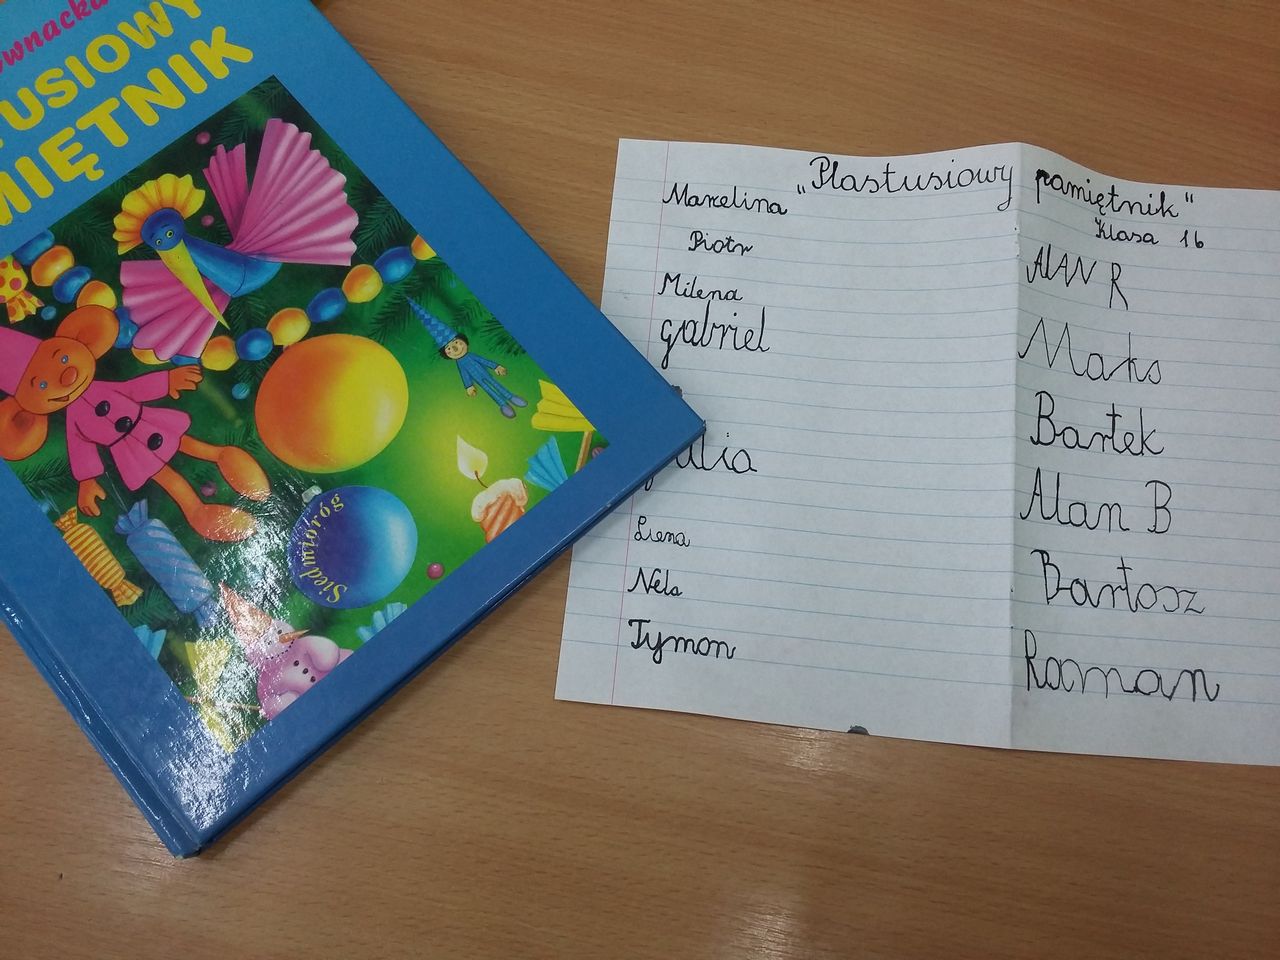 USIOWY
MIĘTNIK
Siedmioróg
„Plastusiowy pamiętnik"
Klasa 1b
Marcelina
Piotr
Milena
gabriel
ulia
Liena
Nela
Tymon
Alan R
Maks
Bartek
Alan B
Bartosz
Roman